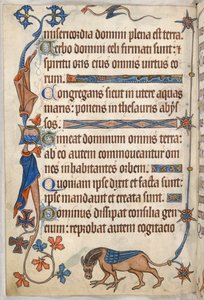 misericordia domini plena est terra.
Verbo domini celi firmati sunt: et
spiritu oris eius omnis virtus eo
rum.
Congregans sicut in utere aquas
maris: ponens in thesauris abys
sos.
Timeat dominum omnis terra:
ab eo autem commoueantur om
nes inhabitantes orbem.
Quoniam ipse dixit et facta sunt:
ipse mandauit et creata sunt.
Dominus dissipat consilia gen
cium: reprobat autem cogitacio